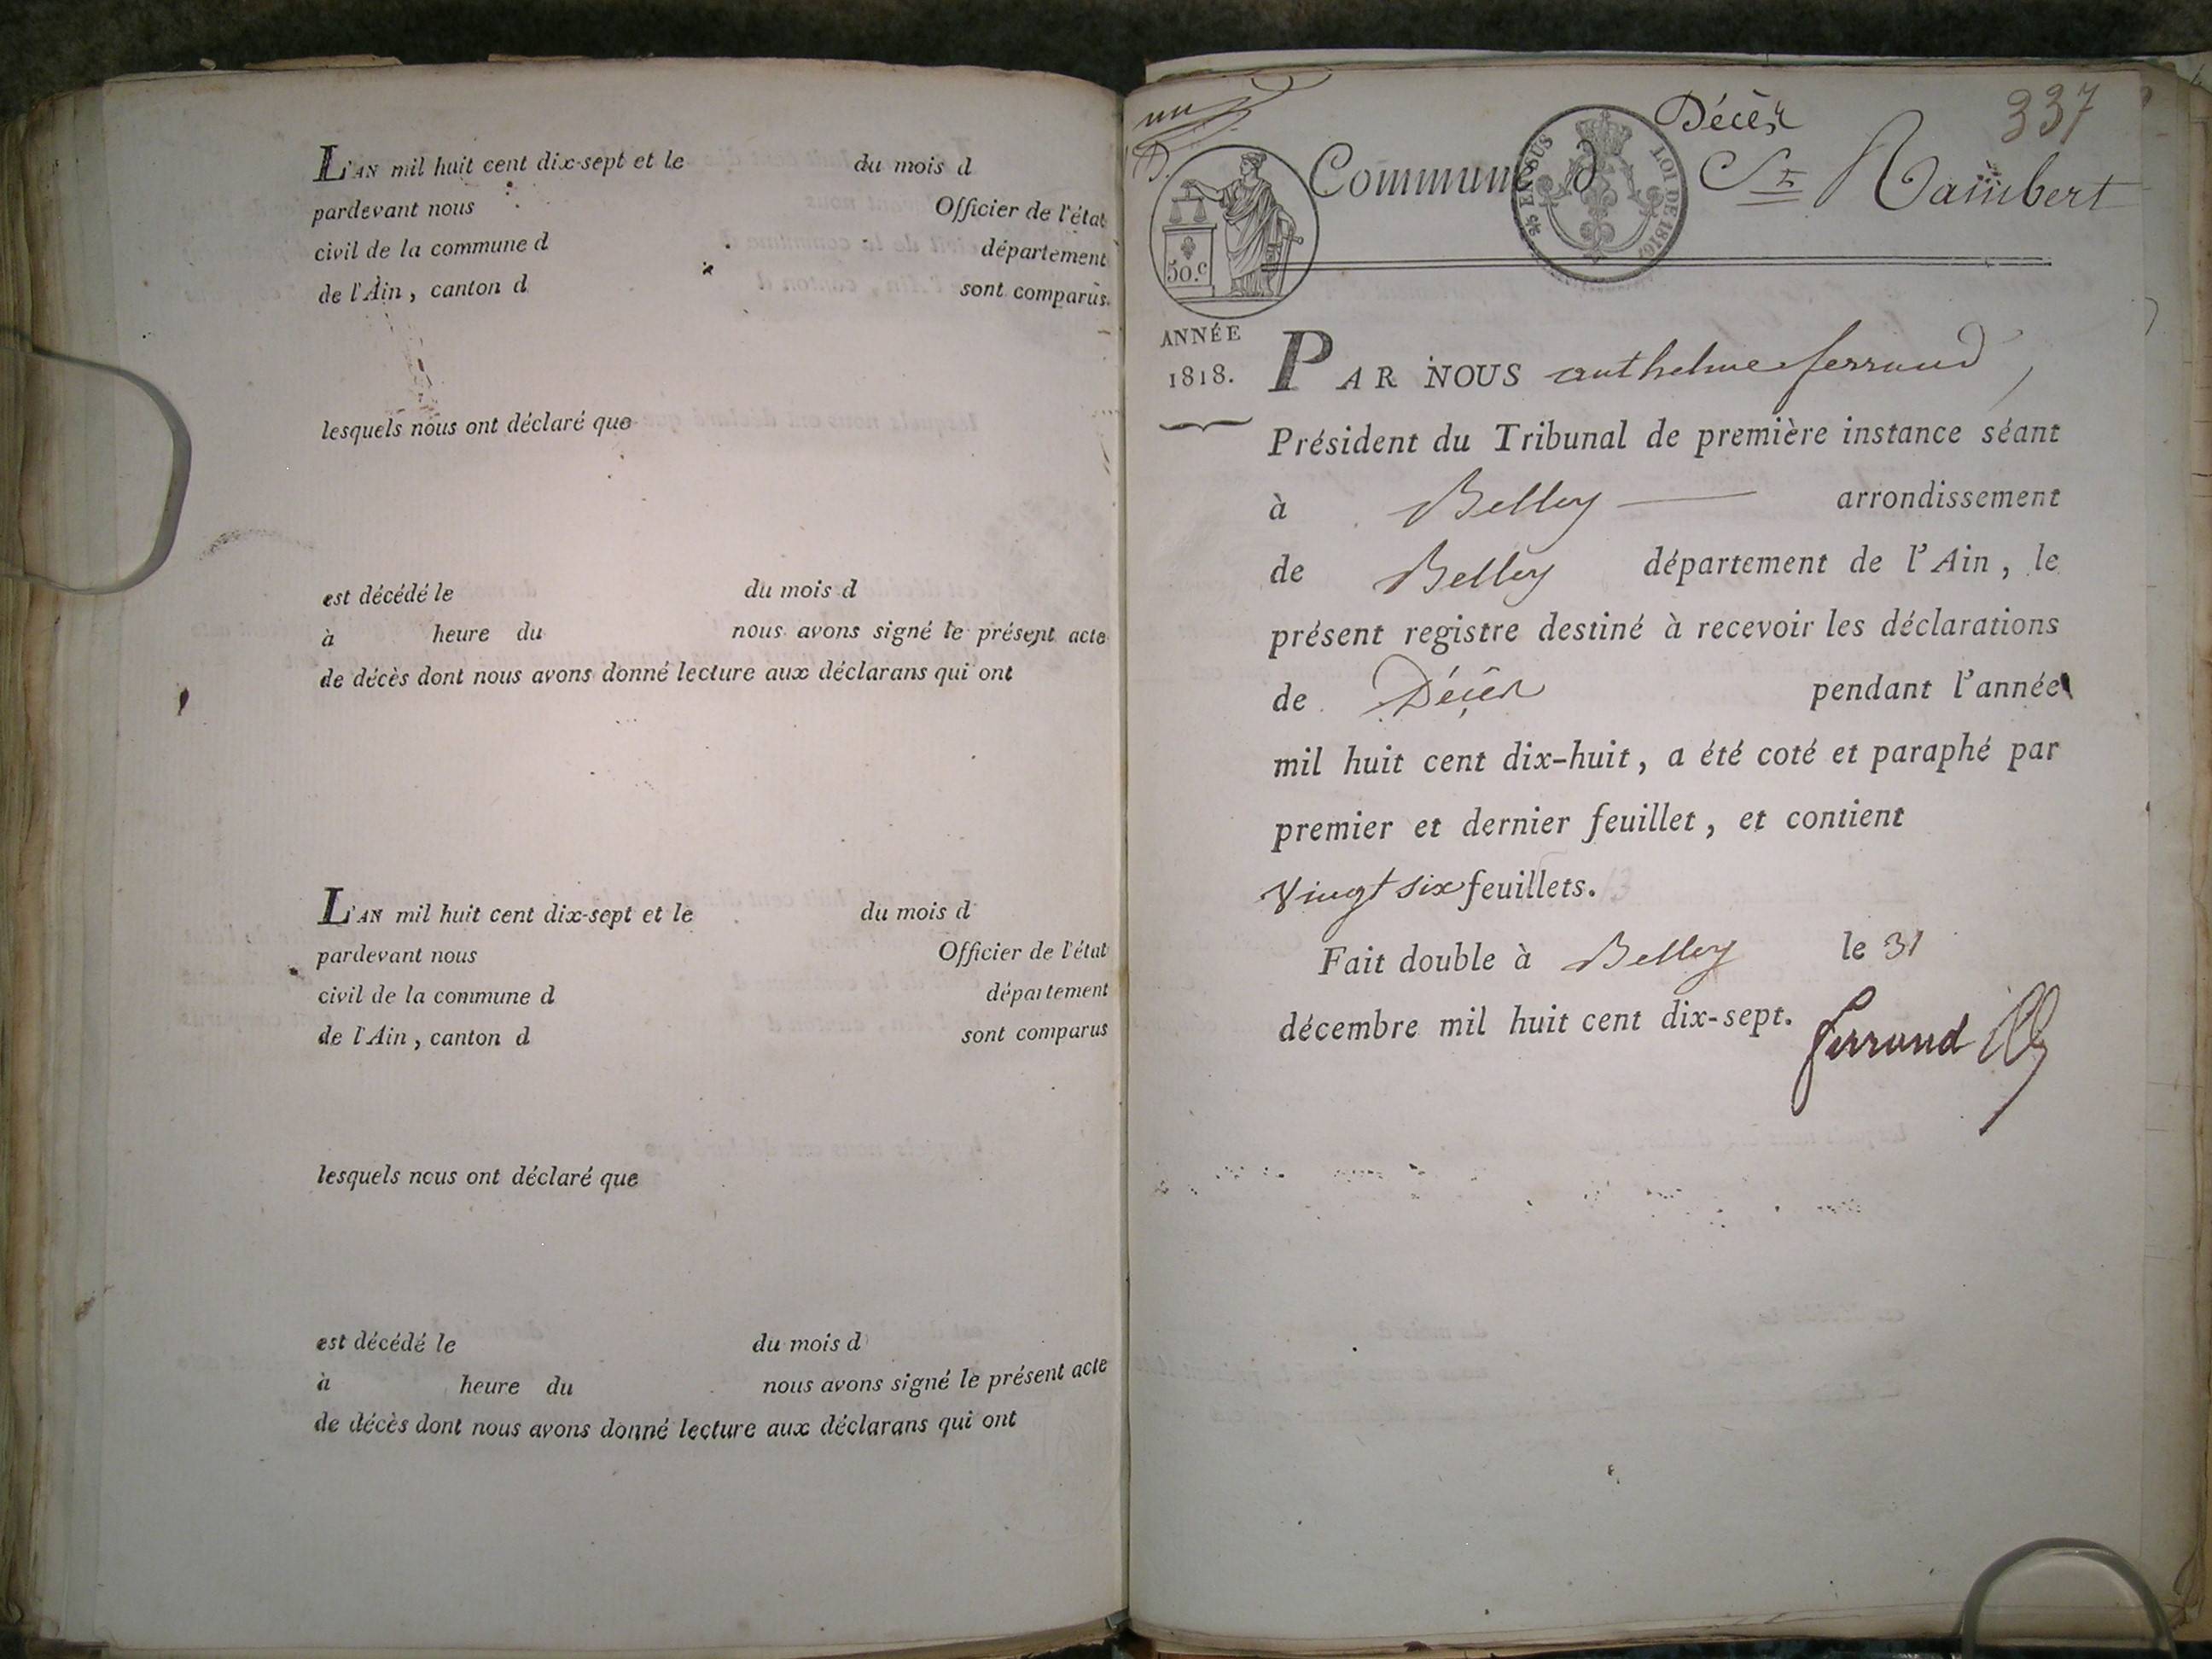 L'AN mil huit cent dix-sept et le du mois d
pardevant nous Officier de l'état
civil de la commune d département
de l'Ain, canton d sont comparus
lesquels nous ont déclaré que
est décédé le du mois d
à heure du nous avons signé le présent acte
de décès dont nous avons donné lecture aux déclarans qui ont
L'AN mil huit cent dix-sept et le du mois d
pardevant nous Officier de l'état
civil de la commune d département
de l'Ain, canton d sont comparus
lesquels nous ont déclaré que
est décédé le du mois d
à heure du nous avons signé le présent acte
de décès dont nous avons donné lecture aux déclarans qui ont
337
Décès
Commune d St Rambert
EN SUS LOI DE 1816
50.c
ANNÉE
1818.
PAR NOUS anthelme ferrand,
Président du Tribunal de première instance séant
à Belley arrondissement
de Belley département de l'Ain, le
présent registre destiné à recevoir les déclarations
de Décès pendant l'année
mil huit cent dix-huit, a été coté et paraphé par
premier et dernier feuillet, et contient
Vingt six feuillets.
Fait double à Belley le 31
décembre mil huit cent dix-sept.
ferrand